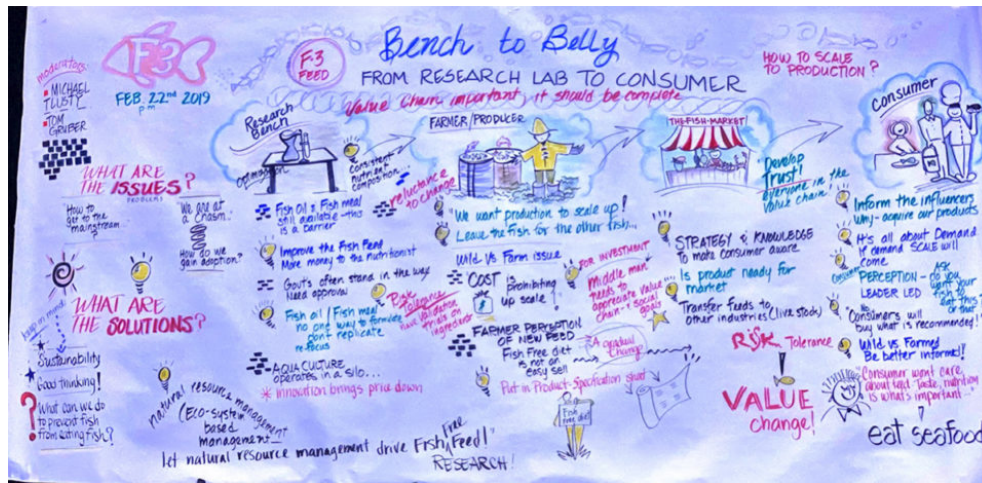 moderators:
MICHAEL
TLUSTY
TOM
GRUBER
F3
FEB. 22nd 2019
pm
F-3
FEED
Bench to Belly
FROM RESEARCH LAB TO CONSUMER
Value Chain important, it should be complete
HOW TO SCALE
TO PRODUCTION?
WHAT ARE
THE ISSUES?
PROBLEMS
How to
get to the
mainstream
?
We are at
a Chasm...
How do we
gain adoption?
keep in mind
WHAT ARE
THE SOLUTIONS?
Sustainability
Good thinking!
? What can we do
to prevent fish
from eating fish?
Research
Bench
Optimization
consistent
nutrient
composition
Fish Oil & Fish meal
still available - this
is a barrier
Improve the Fish Feed
More money to the nutritionist
Gov't often stand in the way
Need approval
Fish oil / Fish meal
no one way to formulate
Don't replicate
re-focus
AQUACULTURE
operates in a silo...
* innovation brings price down
natural resource management
(Eco-system
based
management...
let natural resource management drive Fish Free Feed!
RESEARCH!
FARMER/PRODUCER
reluctance
to change
"We want production to scale up!
Leave the Fish for the other fish...
Wild vs Farm issue
COST is
Prohibiting
up scale!
Risk
Tolerance
have Validation
trials on
ingredients
FARMER PERCEPTION
OF NEW FEED
Fish Free diet
is not an
easy sell
Put in Product-Specification sheet
A gradual
Change
Fish
Free diet
FOR INVESTMENT
Middle man
needs to
appreciate value
chain - & social
goals
THE FISH MARKET
Develop
Trust!
everyone in the
value chain
STRATEGY & KNOWLEDGE
To make consumer aware
Is product ready for
market
Transfer feeds to
other industries (live stock)
RISK Tolerance
VALUE
Change!
Consumer
Inform the influencers
why - acquire our products
It's all about Demand
if demand SCALE will
come
Consumer
PERCEPTION -
LEADER LED
ASK
do you
want your
fish to
eat this
or that
Consumers will
buy what is recommended!
Wild vs Farmed
Be better informed!
Consumer wont care
about feed. Taste, nutrition
is what's important...
eat seafood